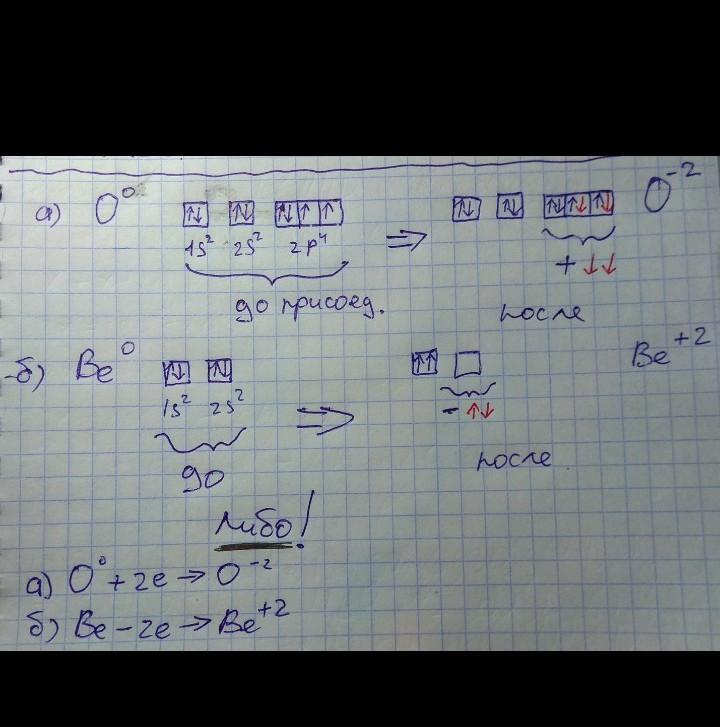 а) O⁰ ↑↓ ↑↓ ↑↓ ↑ ↑ ⇒ ↑↓ ↑↓ ↑↓ ↑↓ ↑↓ O⁻²
1s² 2s² 2p⁴ + ↓↓
до присоед. после
б) Be⁰ ↑↓ ↑↓ ⇒ ↑↑ Be⁺²
1s² 2s² - ↑↓
до после
либо!
а) O⁰ + 2e → O⁻²
б) Be - 2e → Be⁺²